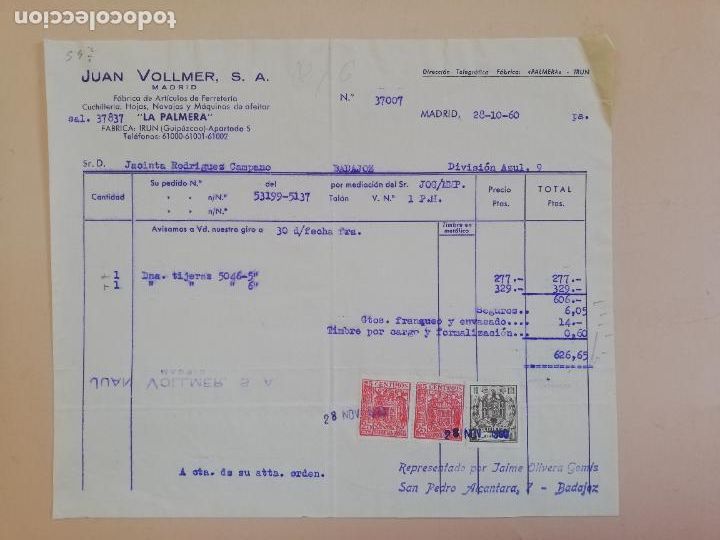 todocoleccion.net
JUAN VOLLMER, S. A.
MADRID
Fábrica de Artículos de Ferretería
Cuchillería, Hojas, Navajas y Máquinas de afeitar
sal. 37837 "LA PALMERA"
FABRICA: IRUN (Guipúzcoa)-Apartado 5
Teléfonos: 61000-61001-61002
Dirección Telegráfica Fábrica: «PALMERA» - IRUN
N.º 37007
MADRID, 28-10-60 pa.
Sr. D. Jacinta Rodriguez Campano BADAJOZ División Azul. 9
Cantidad
Su pedido N.º del por mediación del Sr. JOG/EXP.
" " n/N.º 53199-5137 Talón V. N.º 1 P.M.
" " n/N.º
Precio Ptas.
TOTAL Ptas.
Avisamos a Vd. nuestro giro a 30 d/fecha fra.
Timbre en metálico
1 Dna. tijeras 5046-5" 277.- 277.-
1 " " " 6" 329.- 329.-
606.-
Seguros.. 6,05
Gtos. franqueo y envasado.... 14.-
Timbre por cargo y formalización.. 0,60
626,65
MADRID
JUAN VOLLMER, S. A.
CENTIMOS
CENTIMOS
28 NOV. 1960
28 NOV. 1960
A cta. de su atta. orden.
Representado por Jaime Olivera Gomis
San Pedro Alcantara, 7 - Badajoz